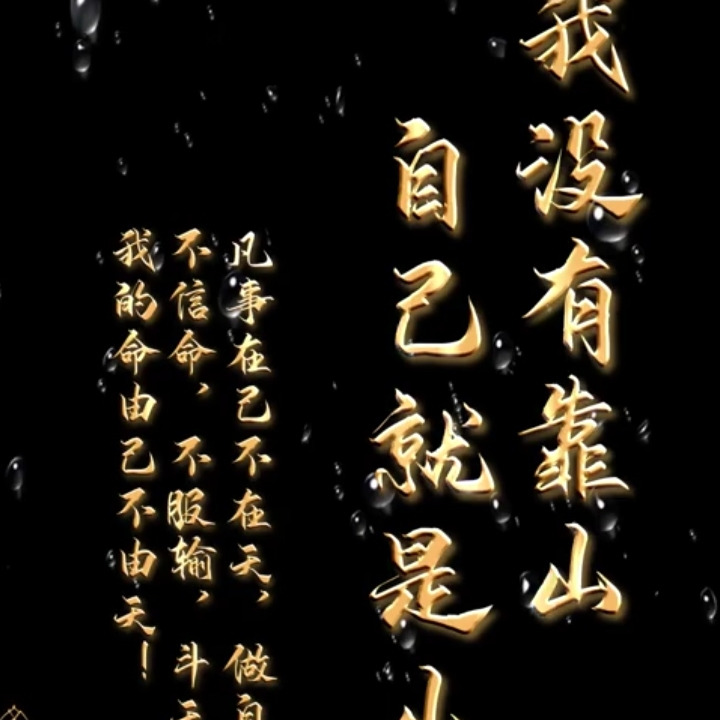 我没有靠山
自己就是山
凡事在己不在天，做自
不信命，不服输，斗天
我的命由己不由天！